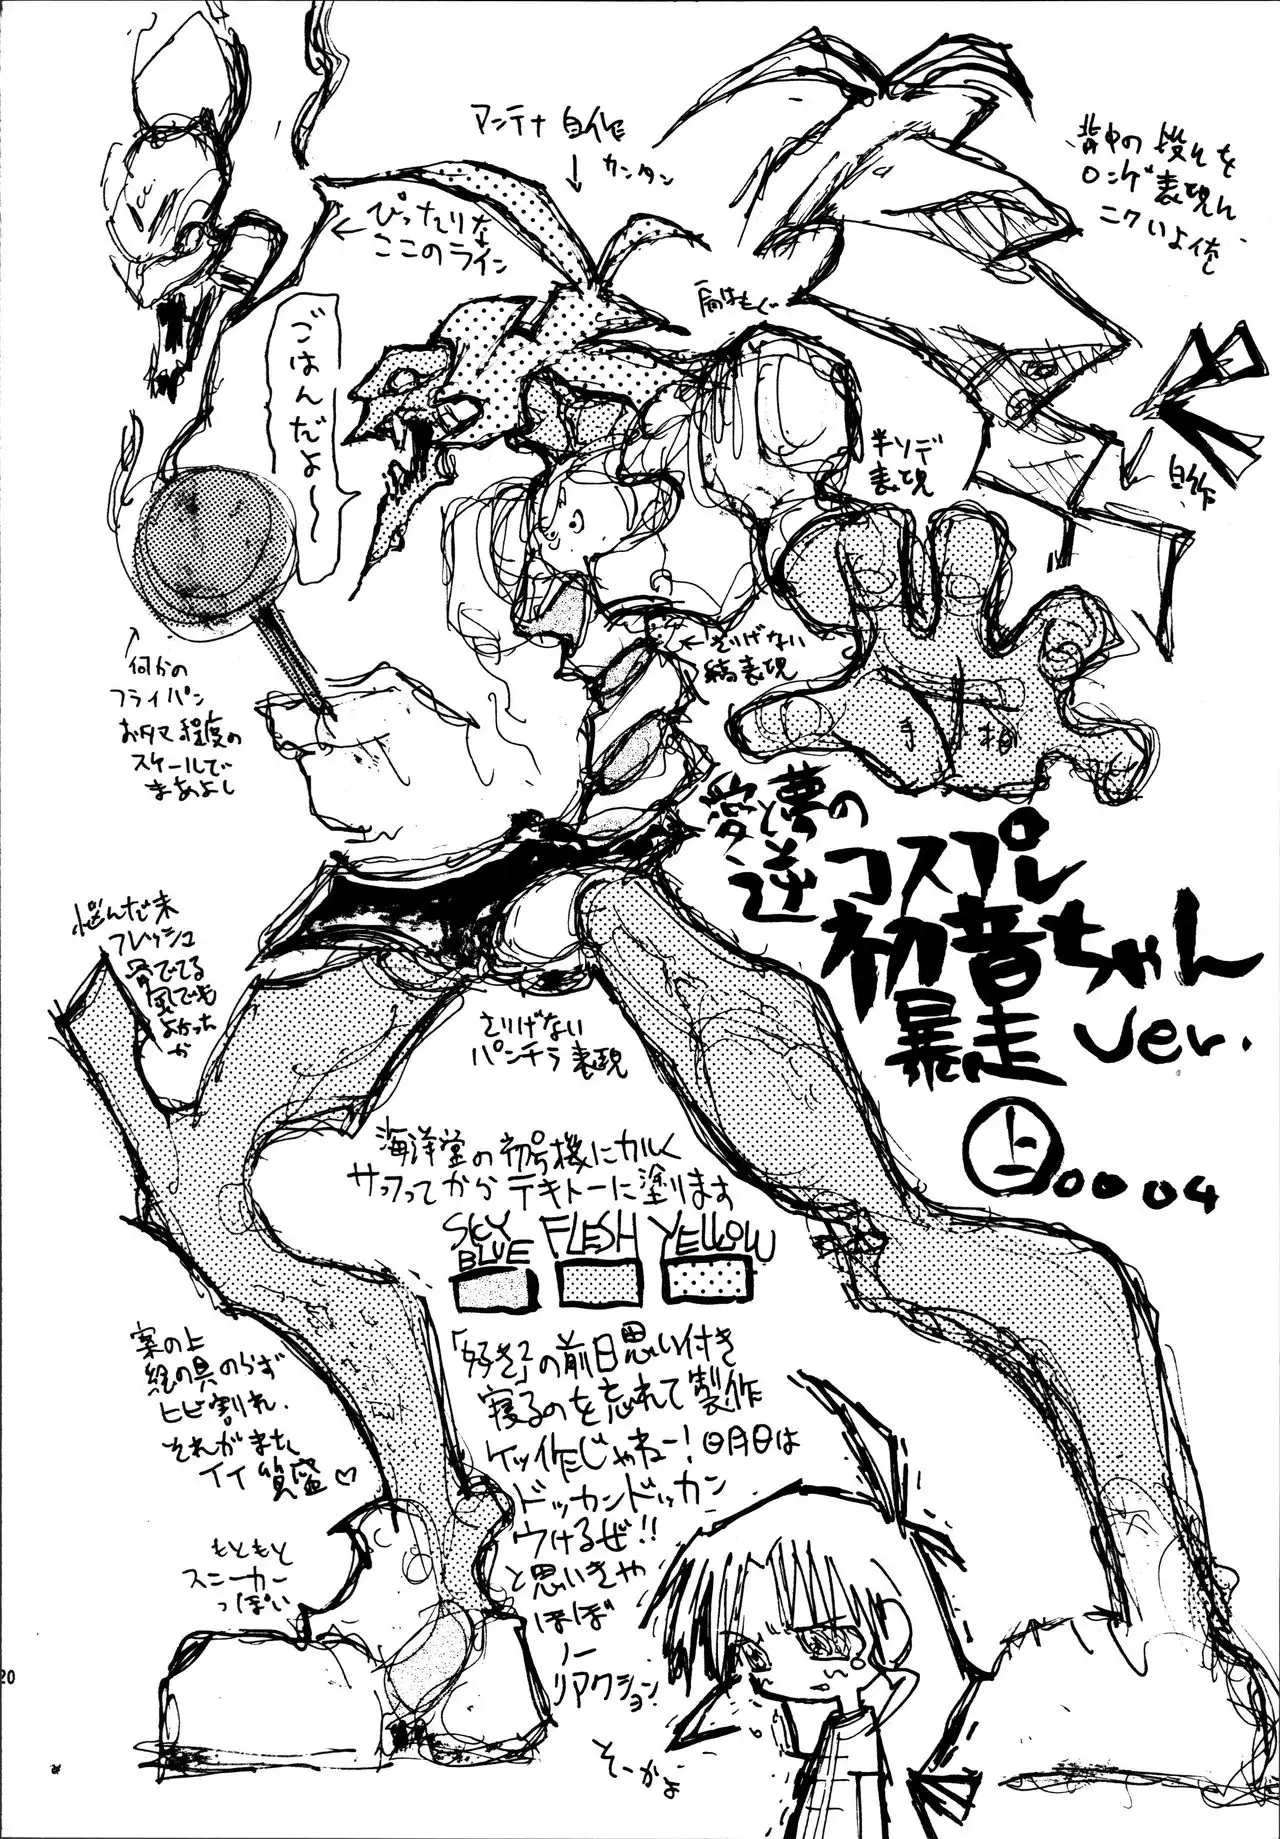 アンテナ 自作
カンタン
ぴったりな
ここのライン
背中の段々を
ロンゲ表現
ニクいよ
ごはんだよ〜
半ソデ
表現
自作
何かの
フライパン
お夕マ程度の
スケールで
まあよし
さりげない
縞表現
手相
愛と夢の
逆コスプレ
初音ちゃん
暴走 ver.
上 0004
悩んだ末
フレッシュ
骨でてる
風でも
よかった
か
さりげない
パンチラ表現
海洋堂の初号機にカルく
サフってからテキトーに塗ります
SKY BLUE
FLESH
YELLOW
案の上
絵の具のらず
ヒビ割れ.
それがまた
イイ質感♡
「好き2」の前日思い付き
寝るのを忘れて製作
ケッ作じゃねー!明日は
ドッカンドッカン
ウけるぜ!!
と思いきや
ほぼ
ノー
リアクション
もともと
スニーカー
っぽい
そーかよ
20